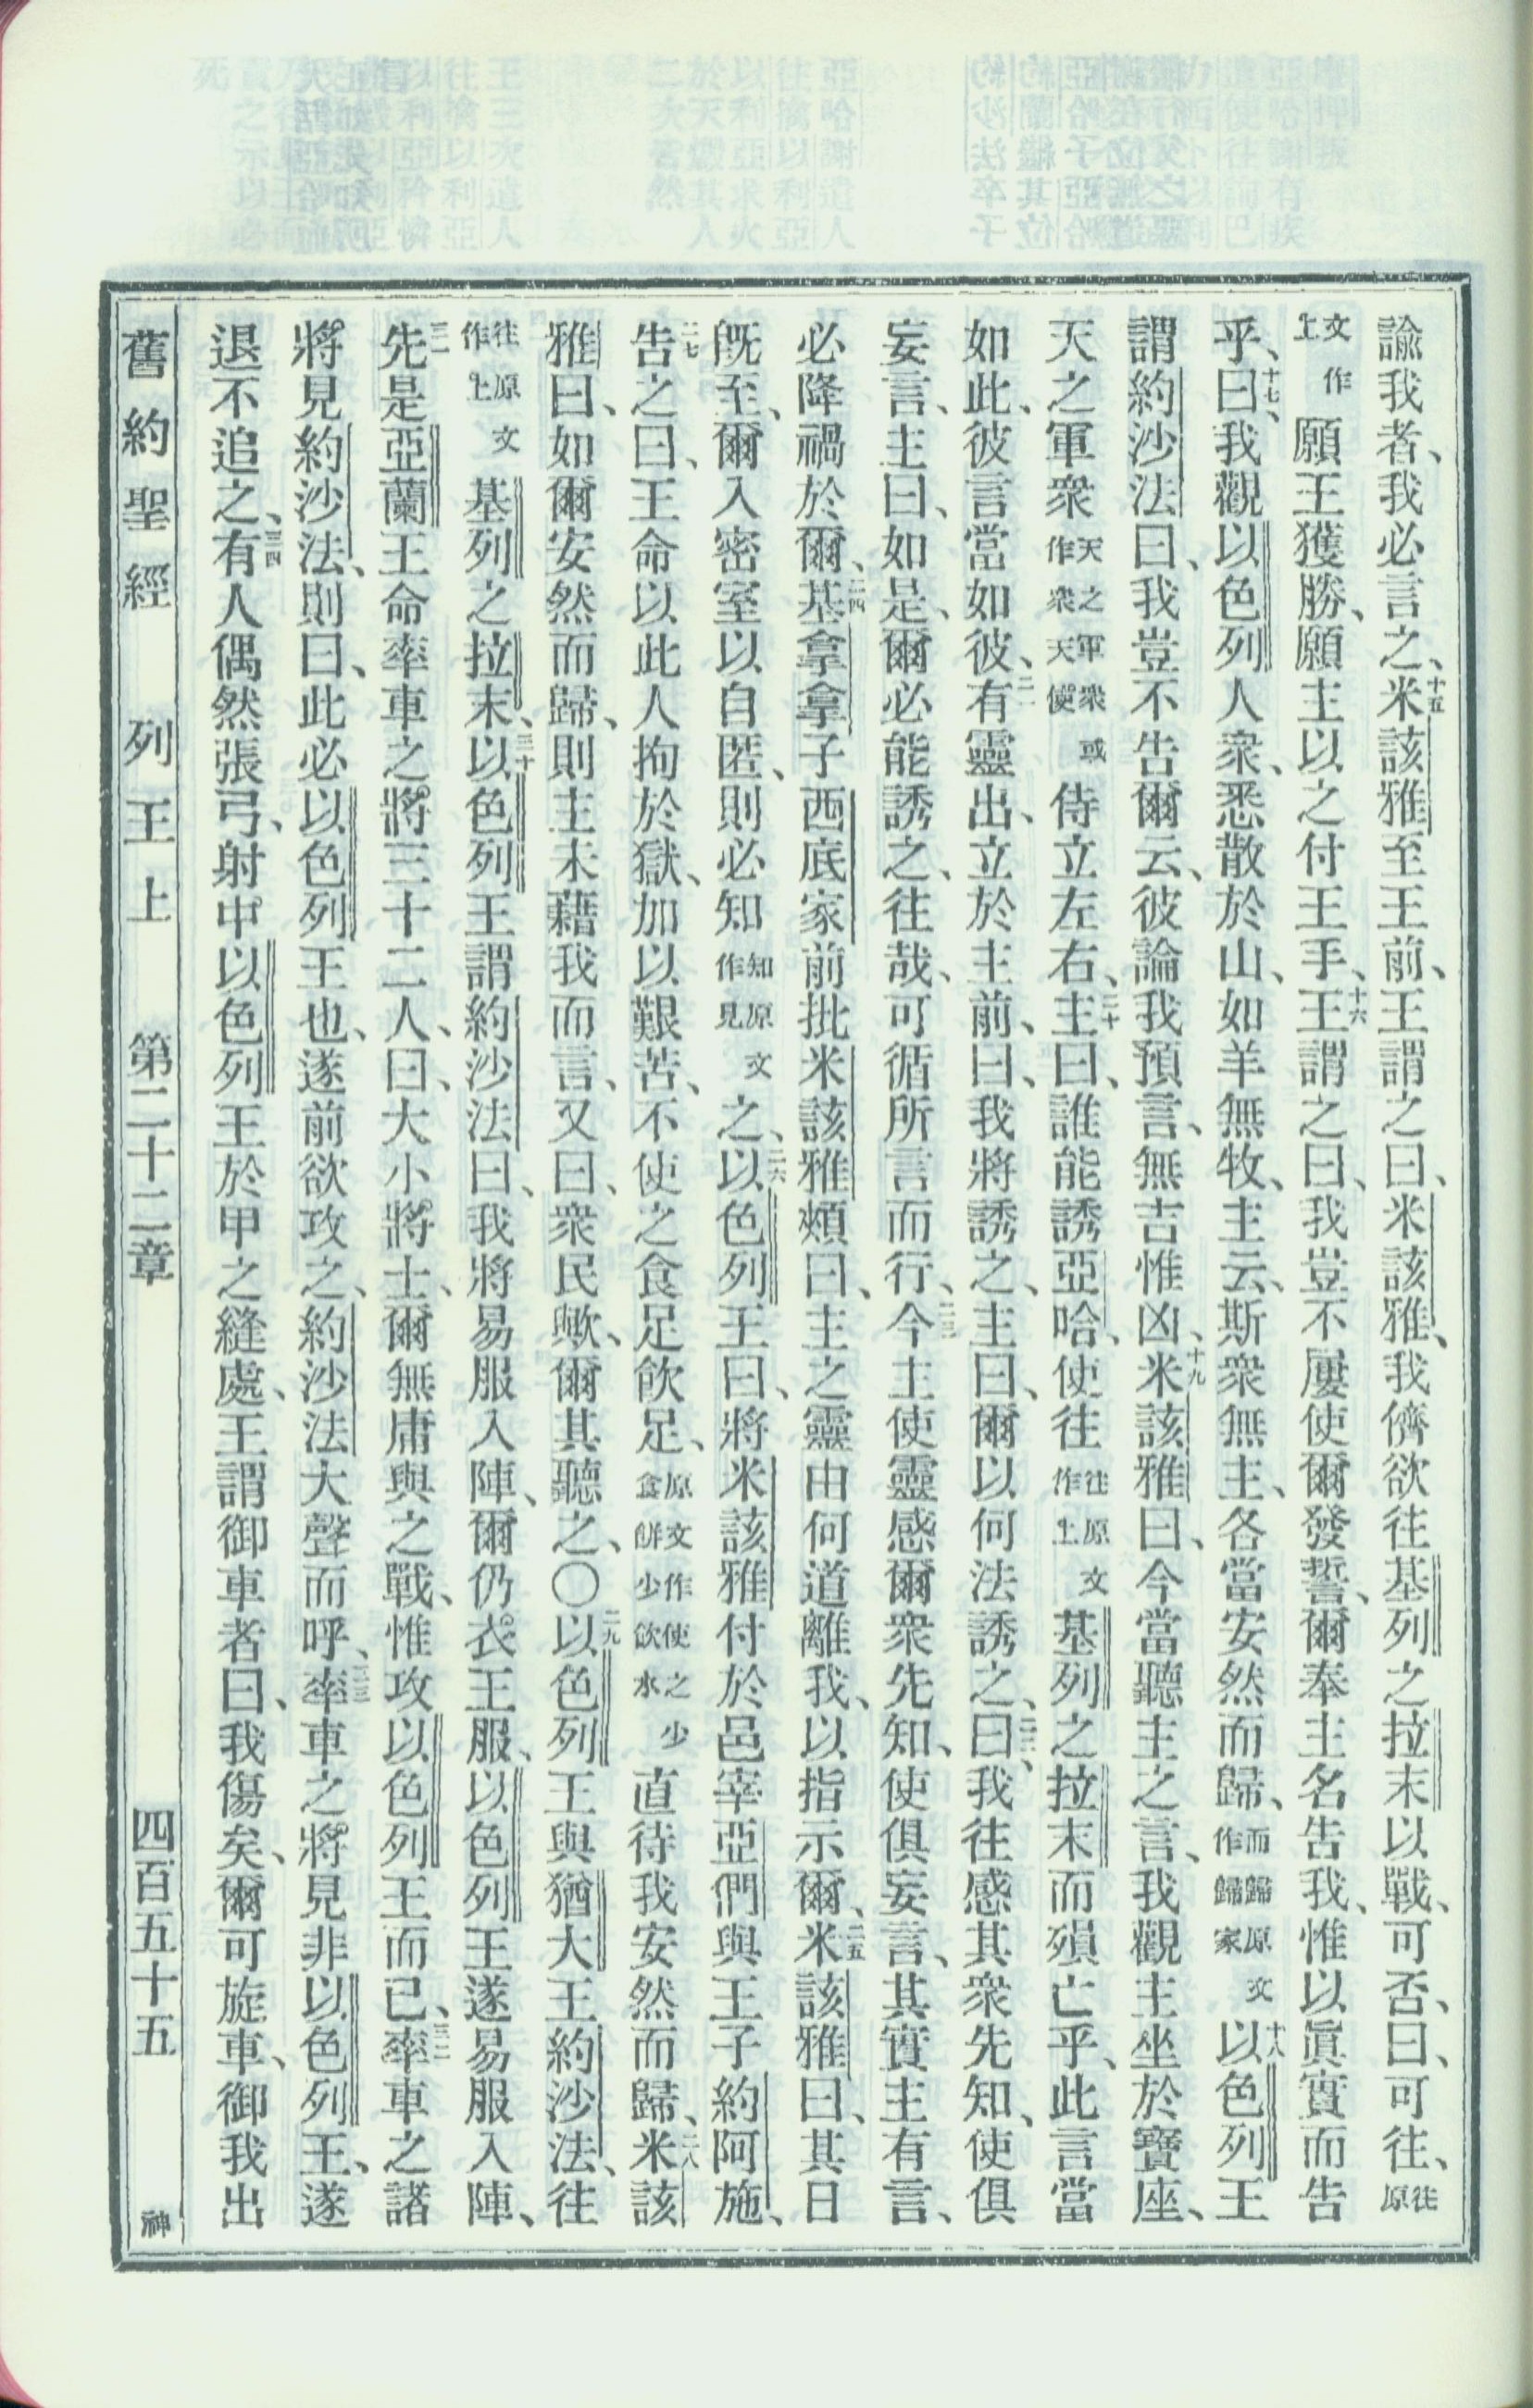 諭我者、我必言之、十五米該雅至王前、王謂之曰、米該雅、我儕欲往基列之拉末以戰、可否、曰、可往、往原
文作上願王獲勝、願主以之付王手、十六王謂之曰、我豈不屢使爾發誓、爾奉主名告我、惟以眞實而告
乎、十七曰、我觀以色列人衆、悉散於山、如羊無牧、主云、斯衆無主、各當安然而歸、而歸原文作歸家十八以色列王
謂約沙法曰、我豈不告爾云、彼論我預言、無吉惟凶、十九米該雅曰、今當聽主之言、我觀主坐於寶座、
天之軍衆天之軍衆或作衆天使侍立左右、二十主曰、誰能誘亞哈、使往往原文作上基列之拉末而殞亡乎、此言當
如此、彼言當如彼、二一有靈出、立於主前、曰、我將誘之、主曰、爾以何法誘之、二二曰、我往感其衆先知、使俱
妄言、主曰、如是、爾必能誘之、往哉、可循所言而行、二三今主使靈感爾衆先知、使俱妄言、其實主有言、
必降禍於爾、二四基拿拿子西底家前批米該雅頰曰、主之靈由何道離我、以指示爾、二五米該雅曰、其日
旣至、爾入密室以自匿、則必知知原文作見之、二六以色列王曰、將米該雅付於邑宰亞們與王子約阿施、
二七告之曰、王命以此人拘於獄、加以艱苦、不使之食足飮足、原文作使之少食餅少飮水直待我安然而歸、二八米該
雅曰、如爾安然而歸、則主未藉我而言、又曰、衆民歟、爾其聽之、〇二九以色列王與猶大王約沙法、往
往原文作上基列之拉末、三十以色列王謂約沙法曰、我將易服入陣、爾仍衣王服、以色列王遂易服入陣、
三一先是亞蘭王命率車之將三十二人、曰、大小將士、爾無庸與之戰、惟攻以色列王而已、三二率車之諸
將見約沙法、則曰、此必以色列王也、遂前欲攻之、約沙法大聲而呼、三三率車之將見非以色列王、遂
退不追之、三四有人偶然張弓、射中以色列王於甲之縫處、王謂御車者曰、我傷矣、爾可旋車、御我出
舊約聖經 列王上 第二十二章 四百五十五 神